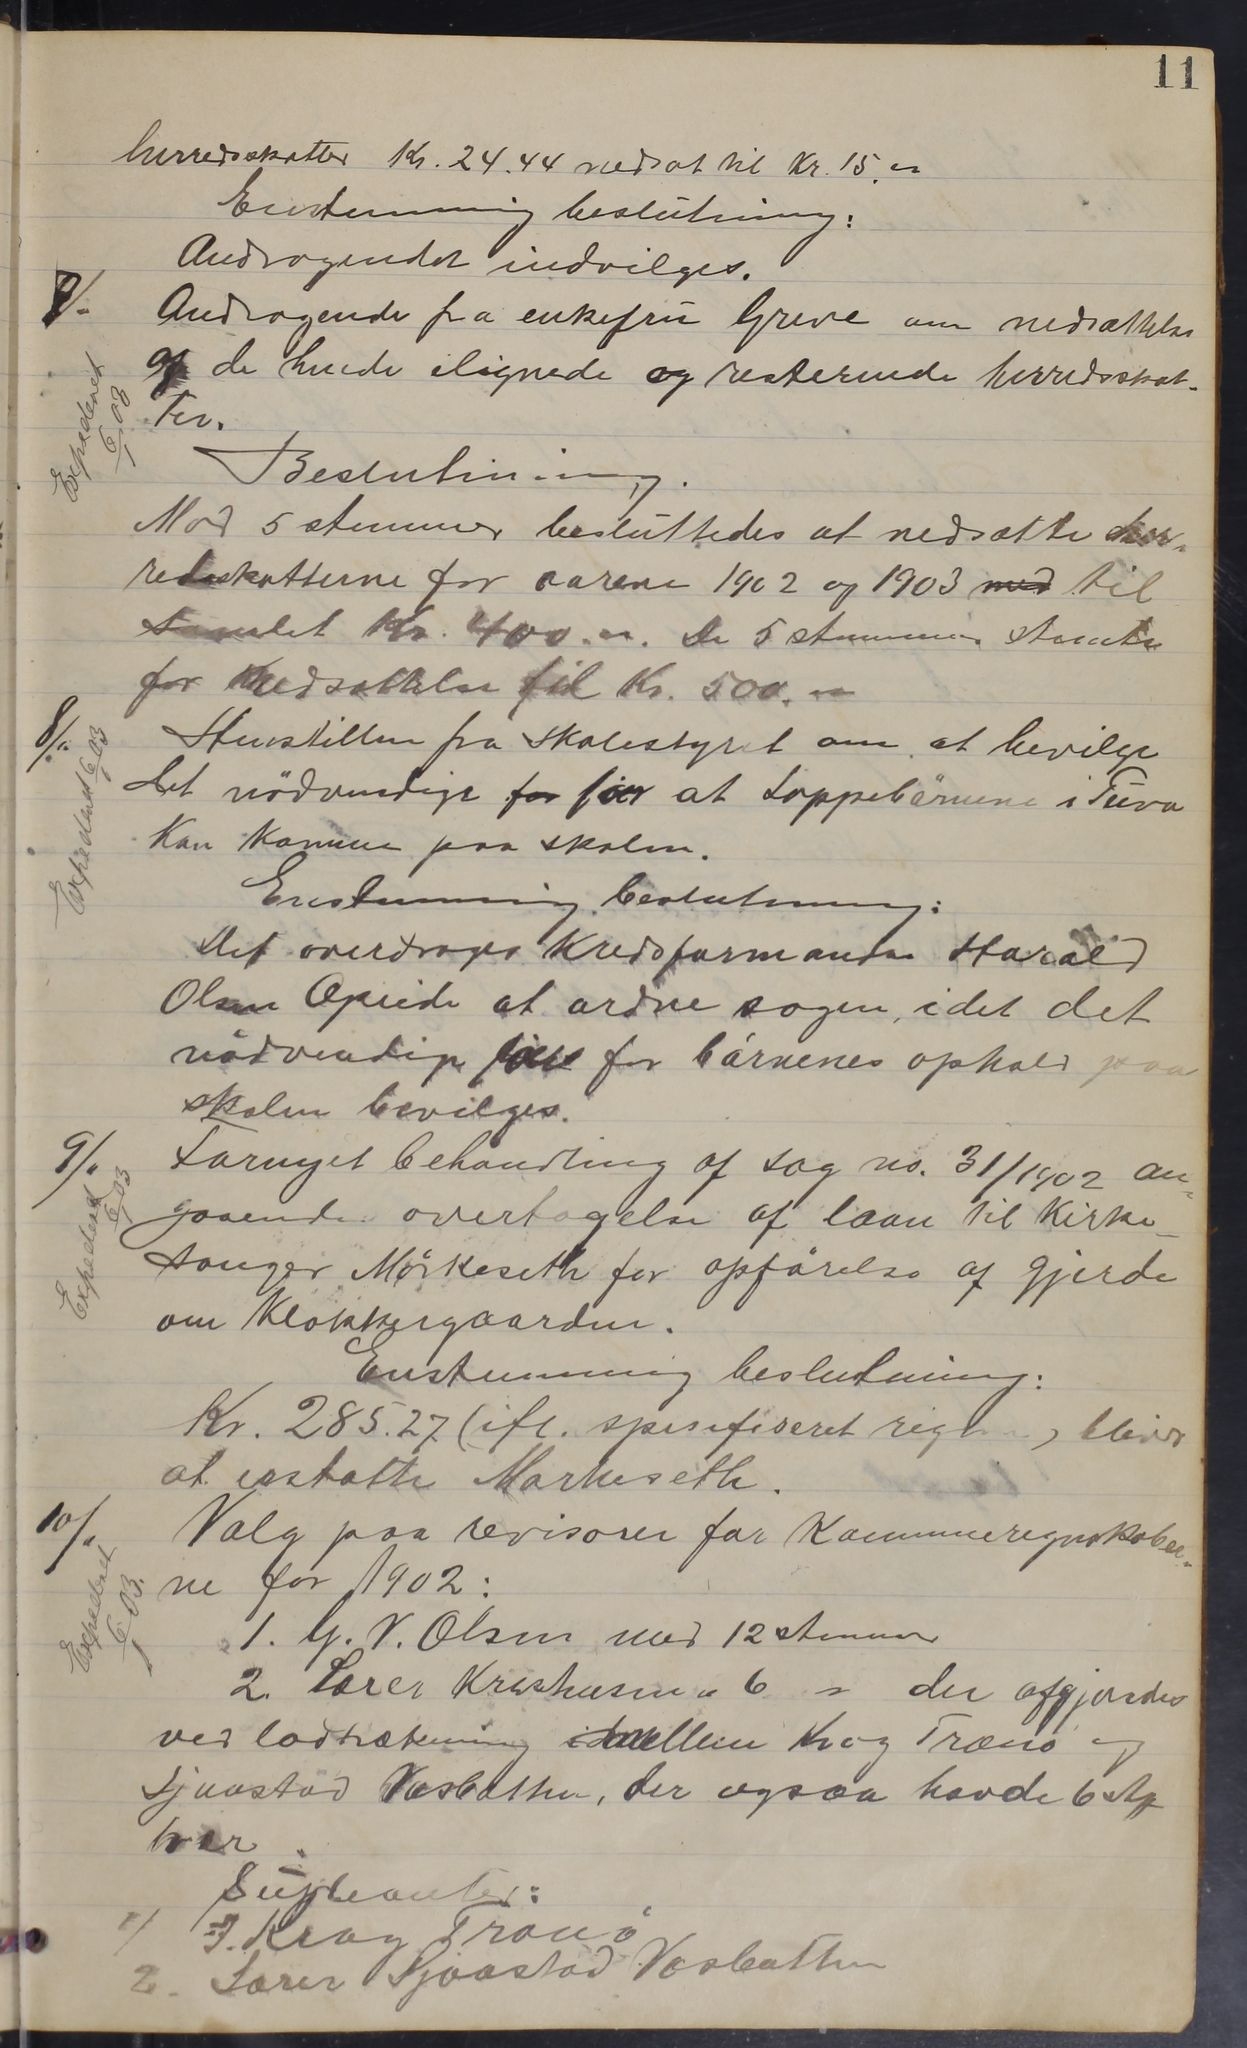 11
herredsskatter Kr. 24.44 nedsat til Kr. 15.„
Enstemmig beslutning:
Andragendet indvilges.
7/. Andragende fra enkefru Greve om nedsættelse
af de hende ilignede og resterende herredsskat-
ter.
Expederet 6/1 03
Beslutning.
Mod 5 stemmer besluttedes at nedsætte her-
redsskatterne for aarene 1902 og 1903 med til
samlet Kr. 400.„. De 5 stemmer stemte
for nedsættelse til Kr. 500.„
8/. Henstillen fra skolestyret om at bevilge
det nödvendige for at Lappebörnene i Tuva
kan komme paa skolen.
Expederet 6/1 03
Enstemmig beslutning:
Det overdrages Kredsformanden Harald
Olsen Opeide at ordne sagen, idet det
nödvendige for börnenes ophold paa
skolen bevilges.
9/. Fornyet behandling af sag no. 31/1902 an-
gaaende overtagelse af laan til Kirke-
sanger Mörkeseth for opförelse af gjerde
om Klokkergaarden.
Expederet 6/1 03
Enstemmig beslutning:
Kr. 285.27 (ifl. spesifiseret regn ) bliver
at erstatte Markeseth.
10/. Valg paa revisorer for Kommuneregnskaber-
ne for 1902:
Expederet 6/1 03.
1. G. V. Olsen med 12 stemmer
2. Lærer Kristensen „ 6 „ der afgjordes
ved lodtrækning imellem Krag Tranö og
Sjaastad Vasbatten, der ogsaa havde 6 st
hver.
Supleanter:
1/ J. Krag Tranö
2. Lærer Sjaastad Vasbatten